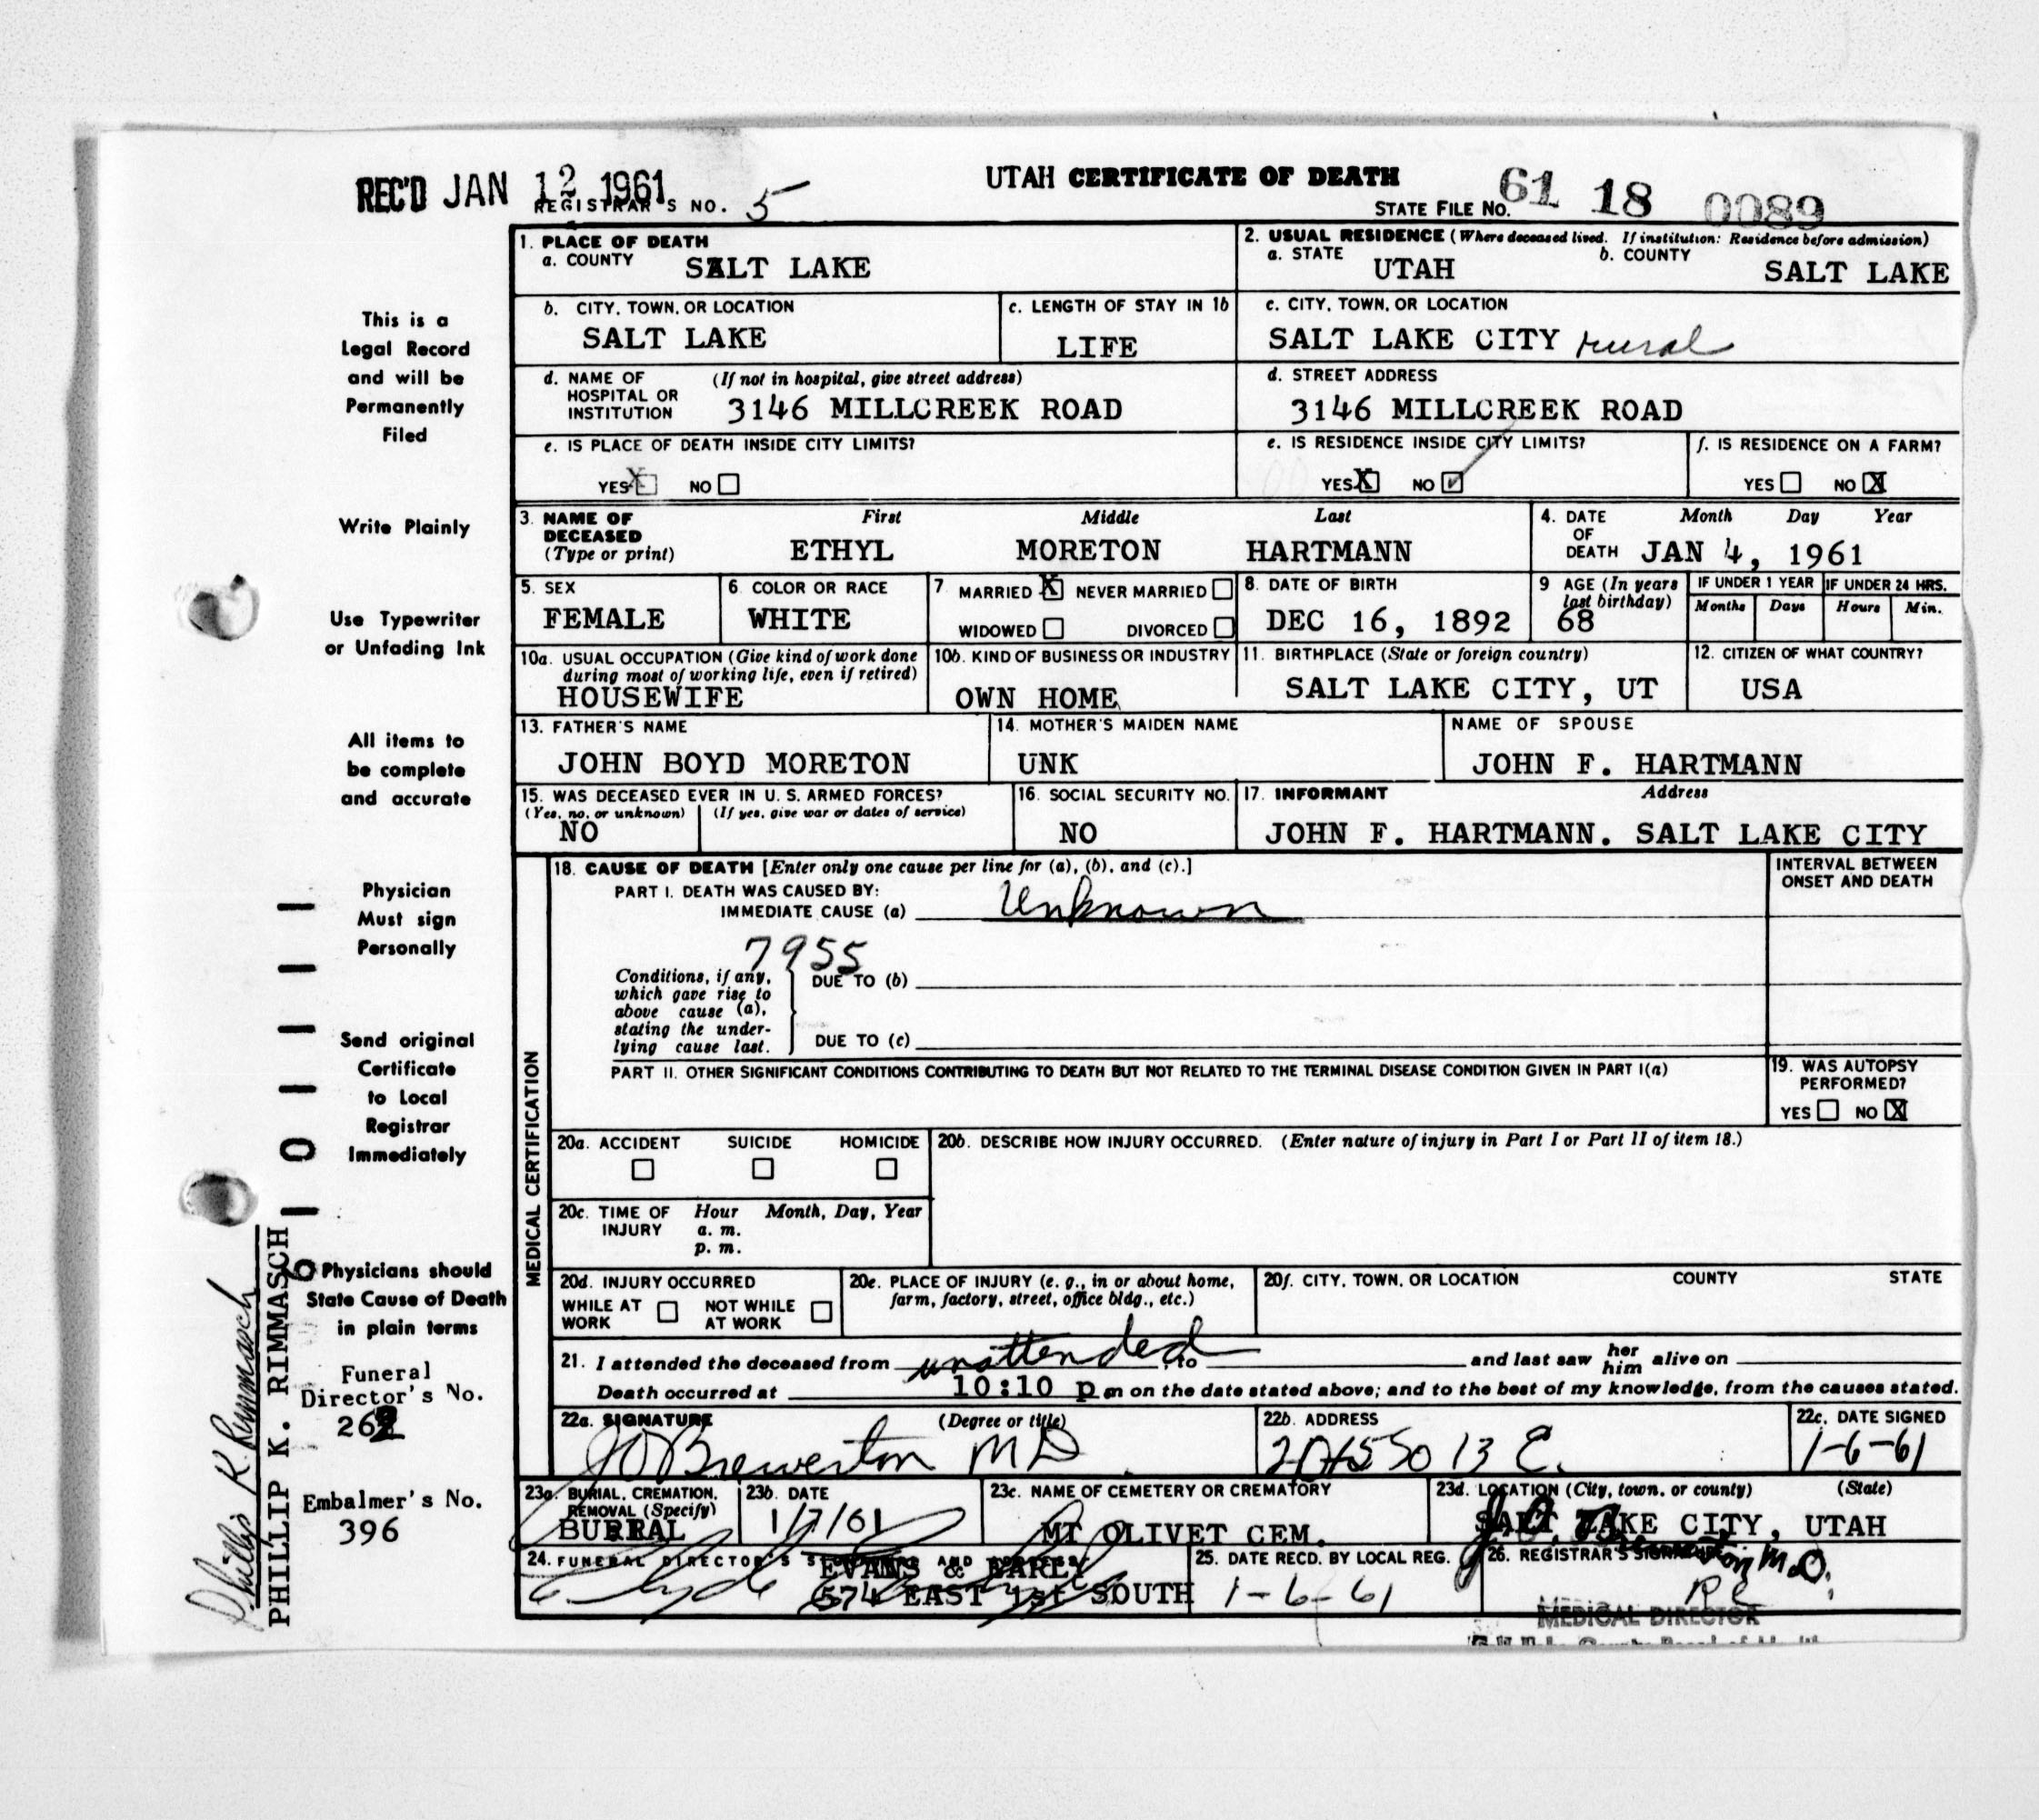 REC'D JAN 12 1961
REGISTRAR'S NO. 5
UTAH CERTIFICATE OF DEATH
STATE FILE NO. 61 18 0089
This is a
Legal Record
and will be
Permanently
Filed
Write Plainly
Use Typewriter
or Unfading Ink
All items to
be complete
and accurate
Physician
Must sign
Personally
Send original
Certificate
to Local
Registrar
Immediately
Physicians should
State Cause of Death
in plain terms
Funeral
Director's No.
Embalmer's No.
396
PHILIP K. RIMMASCH
1. PLACE OF DEATH
a. COUNTY SALT LAKE
2. USUAL RESIDENCE (Where deceased lived. If institution: Residence before admission)
a. STATE UTAH b. COUNTY SALT LAKE
b. CITY, TOWN, OR LOCATION
SALT LAKE
c. LENGTH OF STAY IN 1b
LIFE
c. CITY, TOWN, OR LOCATION
SALT LAKE CITY rural
d. NAME OF HOSPITAL OR INSTITUTION (If not in hospital, give street address)
3146 MILLCREEK ROAD
d. STREET ADDRESS
3146 MILLCREEK ROAD
e. IS PLACE OF DEATH INSIDE CITY LIMITS?
YES X NO
e. IS RESIDENCE INSIDE CITY LIMITS?
YES X NO ✓
f. IS RESIDENCE ON A FARM?
YES NO X
3. NAME OF DECEASED (Type or print)
First Middle Last
ETHYL MORETON HARTMANN
4. DATE OF DEATH Month Day Year
JAN 4, 1961
5. SEX
FEMALE
6. COLOR OR RACE
WHITE
7 MARRIED X NEVER MARRIED
WIDOWED DIVORCED
8. DATE OF BIRTH
DEC 16, 1892
9 AGE (In years last birthday)
68
IF UNDER 1 YEAR
Months Days
IF UNDER 24 HRS.
Hours Min.
10a. USUAL OCCUPATION (Give kind of work done during most of working life, even if retired)
HOUSEWIFE
10b. KIND OF BUSINESS OR INDUSTRY
OWN HOME
11. BIRTHPLACE (State or foreign country)
SALT LAKE CITY, UT
12. CITIZEN OF WHAT COUNTRY?
USA
13. FATHER'S NAME
JOHN BOYD MORETON
14. MOTHER'S MAIDEN NAME
UNK
NAME OF SPOUSE
JOHN F. HARTMANN
15. WAS DECEASED EVER IN U. S. ARMED FORCES?
(Yes, no, or unknown) (If yes, give war or dates of service)
NO
16. SOCIAL SECURITY NO.
NO
17. INFORMANT Address
JOHN F. HARTMANN. SALT LAKE CITY
MEDICAL CERTIFICATION
18. CAUSE OF DEATH [Enter only one cause per line for (a), (b), and (c).]
PART I. DEATH WAS CAUSED BY:
IMMEDIATE CAUSE (a) Unknown
INTERVAL BETWEEN
ONSET AND DEATH
7955
Conditions, if any,
which gave rise to
above cause (a),
stating the under-
lying cause last.
DUE TO (b)
DUE TO (c)
PART II. OTHER SIGNIFICANT CONDITIONS CONTRIBUTING TO DEATH BUT NOT RELATED TO THE TERMINAL DISEASE CONDITION GIVEN IN PART I(a)
19. WAS AUTOPSY
PERFORMED?
YES NO X
20a. ACCIDENT SUICIDE HOMICIDE
20b. DESCRIBE HOW INJURY OCCURRED. (Enter nature of injury in Part I or Part II of item 18.)
20c. TIME OF INJURY Hour Month, Day, Year
a. m.
p. m.
20d. INJURY OCCURRED
WHILE AT WORK NOT WHILE AT WORK
20e. PLACE OF INJURY (e. g., in or about home,
farm, factory, street, office bldg., etc.)
20f. CITY, TOWN, OR LOCATION COUNTY STATE
21. I attended the deceased from unattended, to and last saw her him alive on
Death occurred at 10:10 p m on the date stated above; and to the best of my knowledge, from the causes stated.
22a. SIGNATURE (Degree or title)
JO Brewerton MD
22b. ADDRESS
13 E.
22c. DATE SIGNED
1-6-61
23a. BURIAL, CREMATION,
REMOVAL (Specify)
BURIAL
23b. DATE
1/7/61
23c. NAME OF CEMETERY OR CREMATORY
MT OLIVET CEM.
23d. LOCATION (City, town, or county) (State)
SALT LAKE CITY, UTAH
24. FUNERAL DIRECTOR'S SIGNATURE AND ADDRESS
EVANS & EARLY
574 EAST 1st SOUTH
25. DATE RECD. BY LOCAL REG.
1-6-61
26. REGISTRAR'S SIGNATURE
MEDICAL DIRECTOR